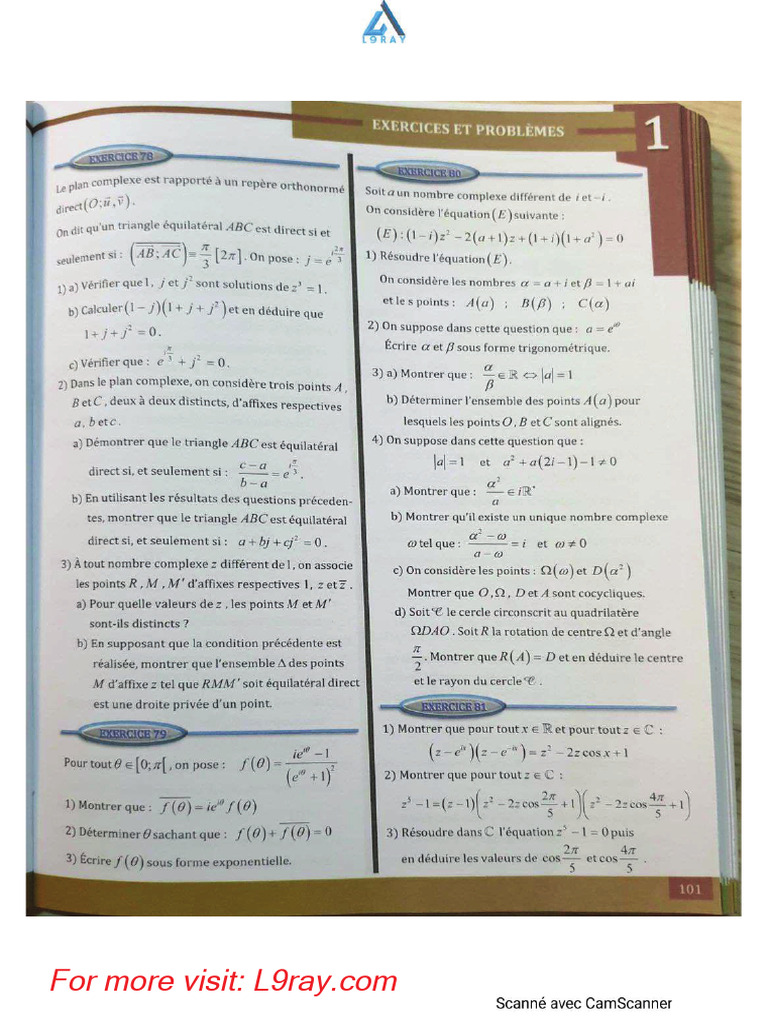 L9RAY
EXERCICES ET PROBLÈMES
1
EXERCICE 78
Le plan complexe est rapporté à un repère orthonormé
direct (O; u⃗, v⃗).
On dit qu'un triangle équilatéral ABC est direct si et
seulement si : (AB ; AC) ≡ π/3 [2π]. On pose : j = e^(i2π/3)
1) a) Vérifier que 1, j et j² sont solutions de z³ = 1.
b) Calculer (1 − j)(1 + j + j²) et en déduire que
1 + j + j² = 0.
c) Vérifier que : e^(iπ/3) + j² = 0.
2) Dans le plan complexe, on considère trois points A,
B et C, deux à deux distincts, d'affixes respectives
a, b et c.
a) Démontrer que le triangle ABC est équilatéral
direct si, et seulement si : (c − a)/(b − a) = e^(iπ/3).
b) En utilisant les résultats des questions préceden-
tes, montrer que le triangle ABC est équilatéral
direct si, et seulement si : a + bj + cj² = 0.
3) À tout nombre complexe z différent de 1, on associe
les points R, M, M' d'affixes respectives 1, z et z̅.
a) Pour quelle valeurs de z, les points M et M'
sont-ils distincts ?
b) En supposant que la condition précédente est
réalisée, montrer que l'ensemble Δ des points
M d'affixe z tel que RMM' soit équilatéral direct
est une droite privée d'un point.
EXERCICE 79
Pour tout θ ∈ [0; π[, on pose : f(θ) = (ie^(iθ) − 1)/(e^(iθ) + 1)²
1) Montrer que : \overline{f(θ)} = ie^(iθ) f(θ)
2) Déterminer θ sachant que : f(θ) + \overline{f(θ)} = 0
3) Écrire f(θ) sous forme exponentielle.
EXERCICE 80
Soit a un nombre complexe différent de i et −i.
On considère l'équation (E) suivante :
(E) : (1 − i)z² − 2(a + 1)z + (1 + i)(1 + a²) = 0
1) Résoudre l'équation (E).
On considère les nombres α = a + i et β = 1 + ai
et le s points : A(a) ; B(β) ; C(α)
2) On suppose dans cette question que : a = e^(iθ)
Écrire α et β sous forme trigonométrique.
3) a) Montrer que : α/β ∈ ℝ ⇔ |a| = 1
b) Déterminer l'ensemble des points A(a) pour
lesquels les points O, B et C sont alignés.
4) On suppose dans cette question que :
|a| = 1 et a² + a(2i − 1) − 1 ≠ 0
a) Montrer que : α²/a ∈ iℝ*
b) Montrer qu'il existe un unique nombre complexe
ω tel que : (α² − ω)/(a − ω) = i et ω ≠ 0
c) On considère les points : Ω(ω) et D(α²)
Montrer que O, Ω, D et A sont cocycliques.
d) Soit 𝒞 le cercle circonscrit au quadrilatère
ΩDAO. Soit R la rotation de centre Ω et d'angle
π/2. Montrer que R(A) = D et en déduire le centre
et le rayon du cercle 𝒞.
EXERCICE 81
1) Montrer que pour tout x ∈ ℝ et pour tout z ∈ ℂ :
(z − e^(ix))(z − e^(−ix)) = z² − 2z cos x + 1
2) Montrer que pour tout z ∈ ℂ :
z⁵ − 1 = (z − 1)(z² − 2z cos 2π/5 + 1)(z² − 2z cos 4π/5 + 1)
3) Résoudre dans ℂ l'équation z⁵ − 1 = 0 puis
en déduire les valeurs de cos 2π/5 et cos 4π/5.
101
For more visit: L9ray.com
Scanné avec CamScanner